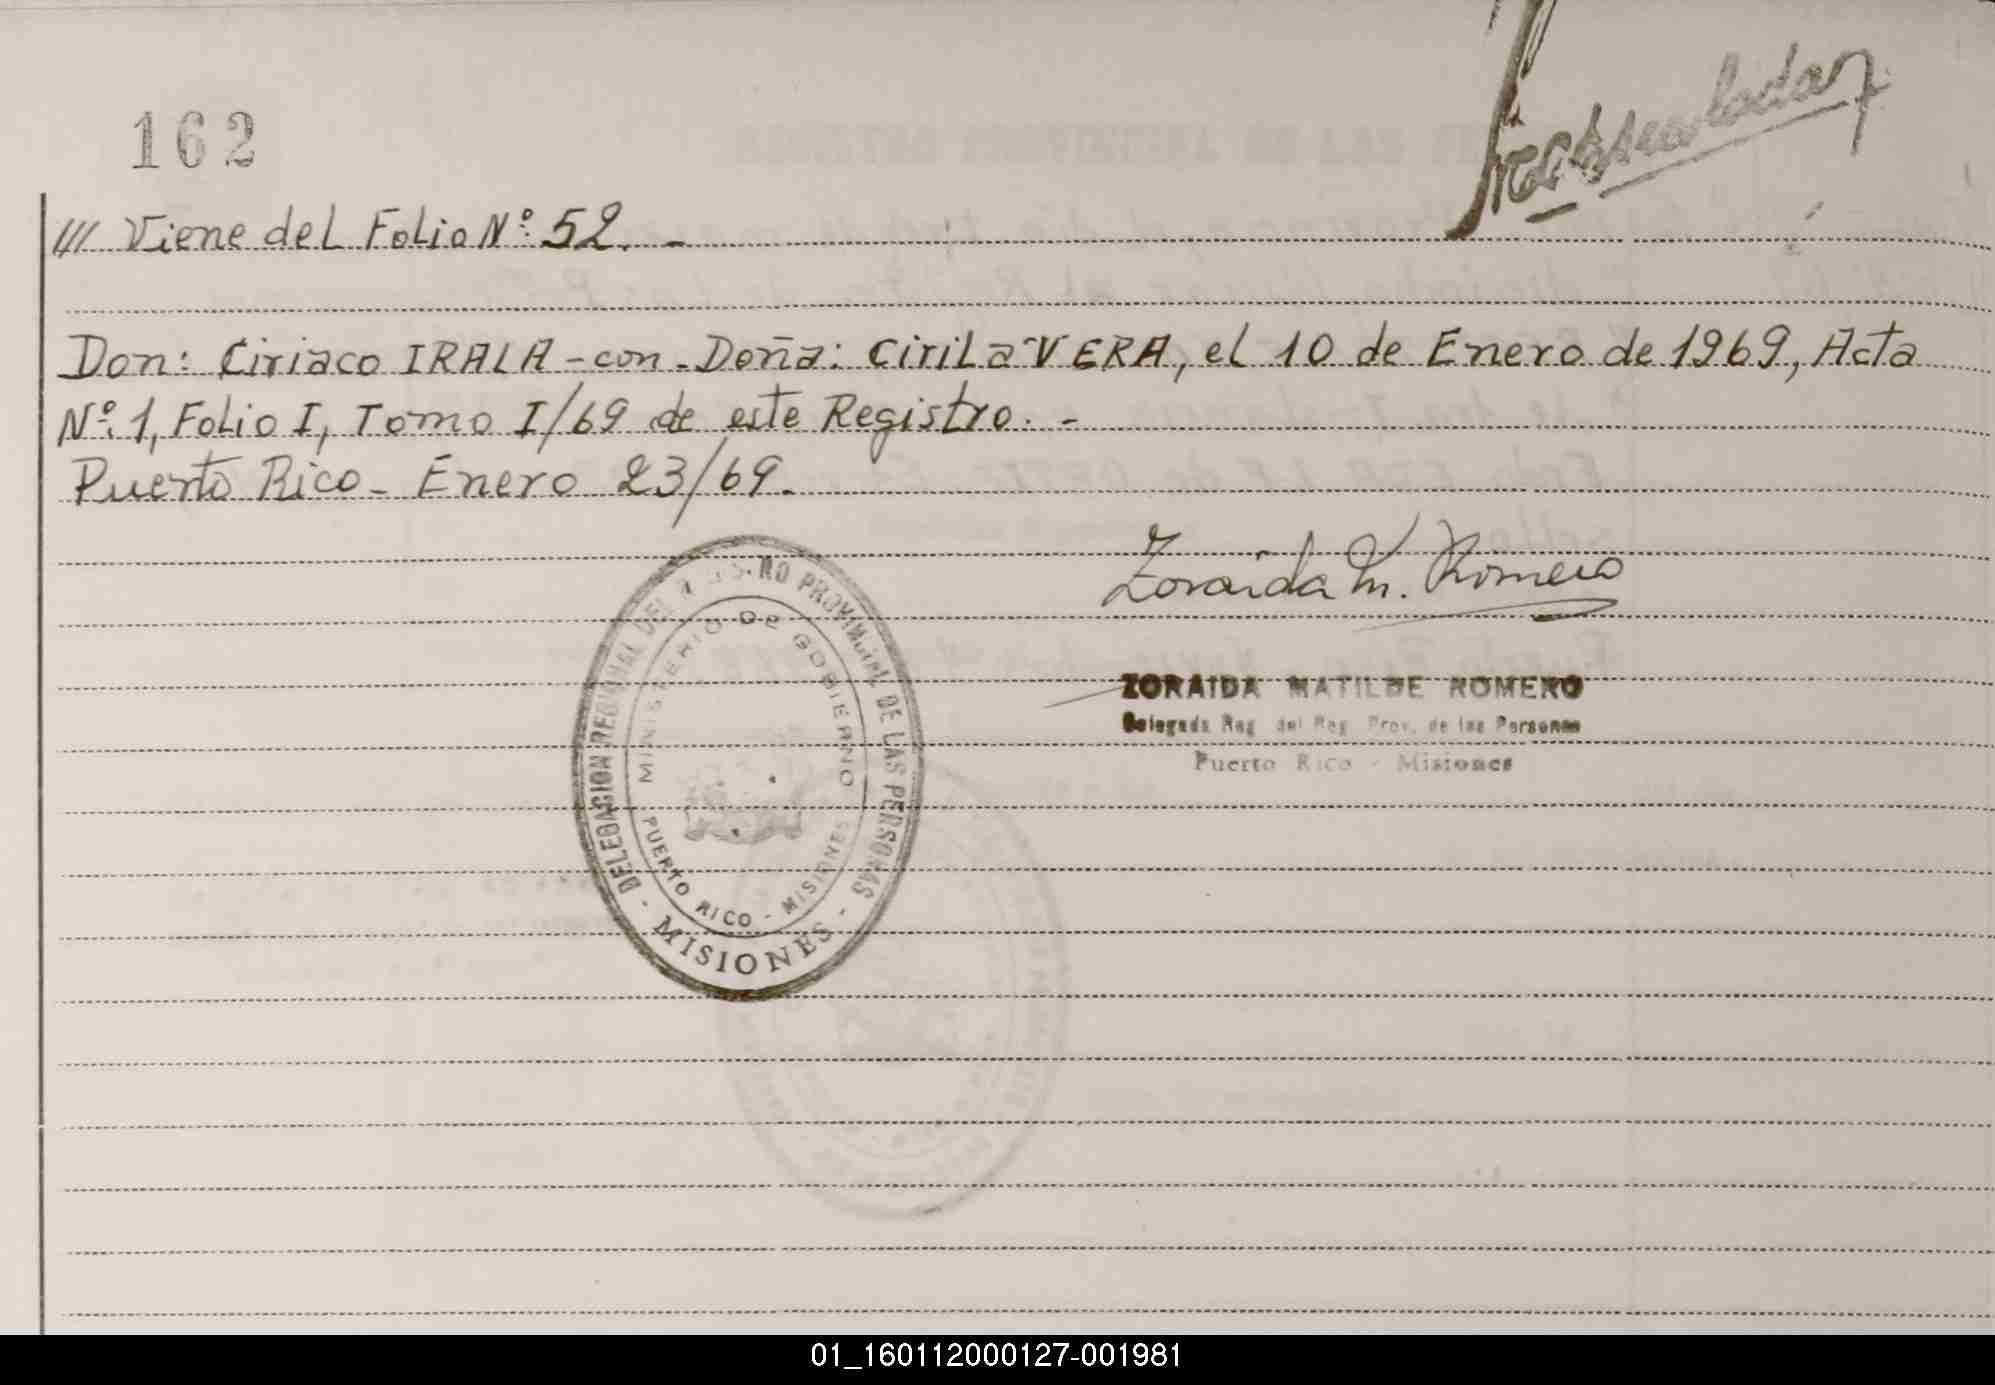 162
/// Viene del Folio Nº 52. -
Don: Ciriaco IRALA - con - Doña: Cirila VERA, el 10 de Enero de 1969, Acta
Nº 1, Folio I, Tomo I/69 de este Registro. -
Puerto Rico - Enero 23/69.
Zoraida M. Romero
ZORAIDA MATILDE ROMERO
Delegada Reg. del Reg. Prov. de las Personas
Puerto Rico - Misiones
DELEGACION REGIONAL DEL REGISTRO PROVINCIAL DE LAS PERSONAS
- MISIONES -
MINISTERIO DE GOBIERNO
PUERTO RICO - MISIONES
01_160112000127-001981